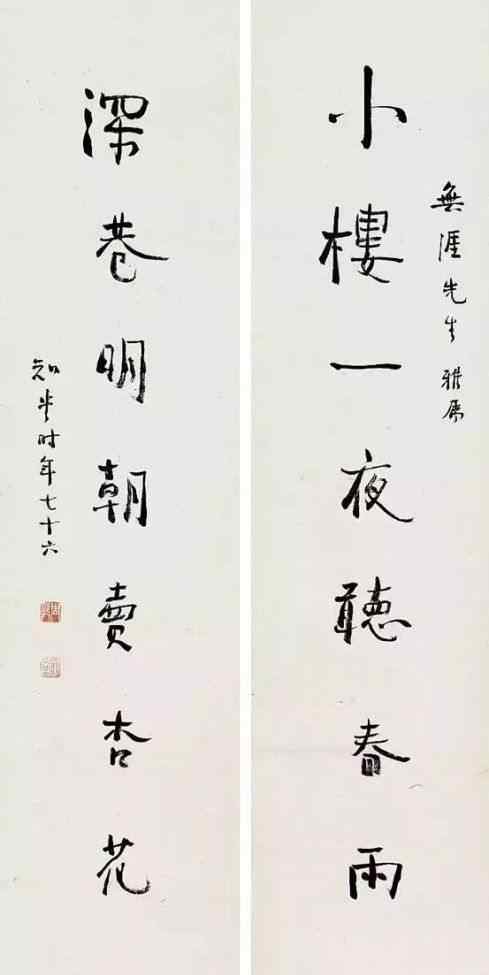 無涯先生雅屬
小樓一夜聽春雨
深巷明朝賣杏花
知堂时年七十六